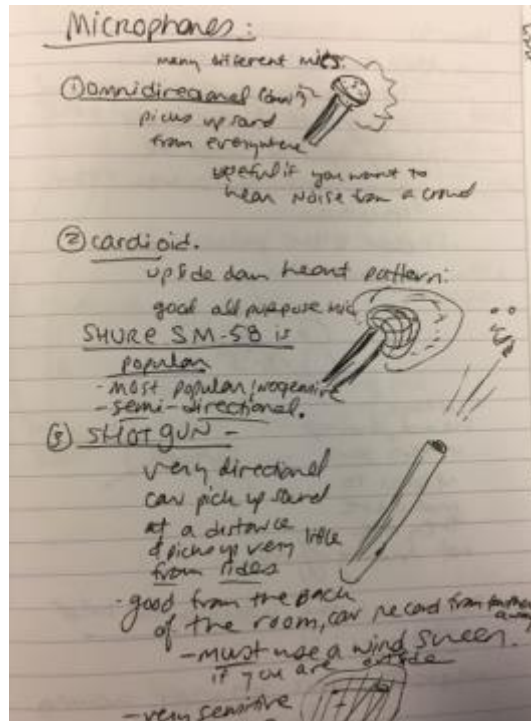 Microphones:
many different mics.
① Omnidirectional (omni)
picks up sound
from everywhere
useful if you want to
hear noise from a crowd
② cardioid.
upside down heart pattern.
good all purpose mic
SHURE SM-58 is
popular
- most popular, inexpensive
- semi-directional.
③ SHOTGUN -
very directional
can pick up sound
at a distance
& picks up very little
from sides
- good from the back
of the room, can record from further
away
- must use a wind screen.
if you are outside
- very sensitive